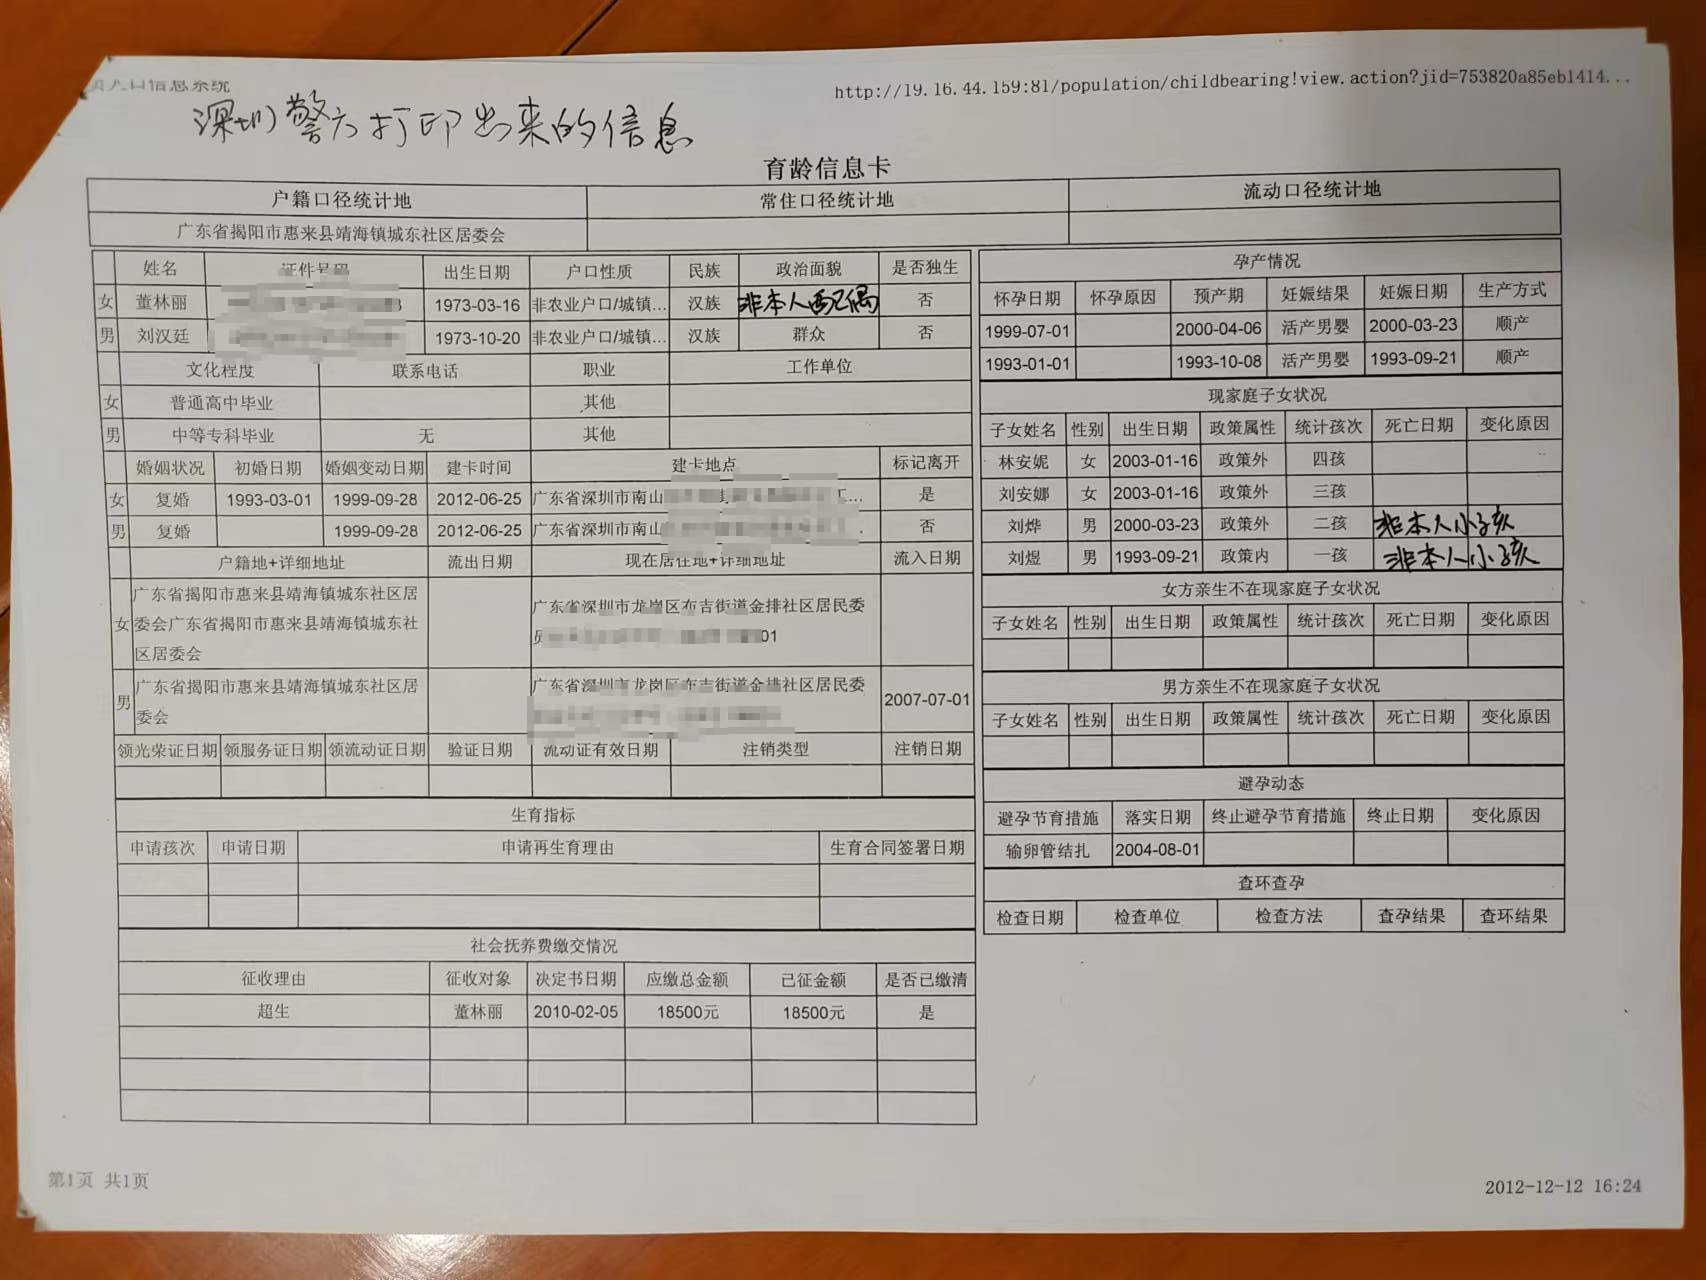 人口信息系统
http://19.16.44.159:81/population/childbearing!view.action?jid=753820a85eb1414...
深圳警方打印出来的信息
育龄信息卡
户籍口径统计地 常住口径统计地 流动口径统计地
广东省揭阳市惠来县靖海镇城东社区居委会
姓名 证件号码 出生日期 户口性质 民族 政治面貌 是否独生
女 董林丽 1973-03-16 非农业户口/城镇... 汉族 非本人配偶 否
男 刘汉廷 1973-10-20 非农业户口/城镇... 汉族 群众 否
文化程度 联系电话 职业 工作单位
女 普通高中毕业 其他
男 中等专科毕业 无 其他
婚姻状况 初婚日期 婚姻变动日期 建卡时间 建卡地点 标记离开
女 复婚 1993-03-01 1999-09-28 2012-06-25 广东省深圳市南山 是
男 复婚 1999-09-28 2012-06-25 广东省深圳市南山 否
户籍地+详细地址 流出日期 现在居住地+详细地址 流入日期
女 广东省揭阳市惠来县靖海镇城东社区居
委会广东省揭阳市惠来县靖海镇城东社
区居委会
广东省深圳市龙岗区布吉街道金排社区居民委
员 01
男 广东省揭阳市惠来县靖海镇城东社区居
委会
广东省深圳市龙岗区布吉街道金排社区居民委
2007-07-01
领光荣证日期 领服务证日期 领流动证日期 验证日期 流动证有效日期 注销类型 注销日期
生育指标
申请孩次 申请日期 申请再生育理由 生育合同签署日期
社会抚养费缴交情况
征收理由 征收对象 决定书日期 应缴总金额 已征金额 是否已缴清
超生 董林丽 2010-02-05 18500元 18500元 是
孕产情况
怀孕日期 怀孕原因 预产期 妊娠结果 妊娠日期 生产方式
1999-07-01 2000-04-06 活产男婴 2000-03-23 顺产
1993-01-01 1993-10-08 活产男婴 1993-09-21 顺产
现家庭子女状况
子女姓名 性别 出生日期 政策属性 统计孩次 死亡日期 变化原因
林安妮 女 2003-01-16 政策外 四孩
刘安娜 女 2003-01-16 政策外 三孩
刘烨 男 2000-03-23 政策外 二孩 非本人小孩
刘煜 男 1993-09-21 政策内 一孩 非本人小孩
女方亲生不在现家庭子女状况
子女姓名 性别 出生日期 政策属性 统计孩次 死亡日期 变化原因
男方亲生不在现家庭子女状况
子女姓名 性别 出生日期 政策属性 统计孩次 死亡日期 变化原因
避孕动态
避孕节育措施 落实日期 终止避孕节育措施 终止日期 变化原因
输卵管结扎 2004-08-01
查环查孕
检查日期 检查单位 检查方法 查孕结果 查环结果
第1页 共1页
2012-12-12 16:24